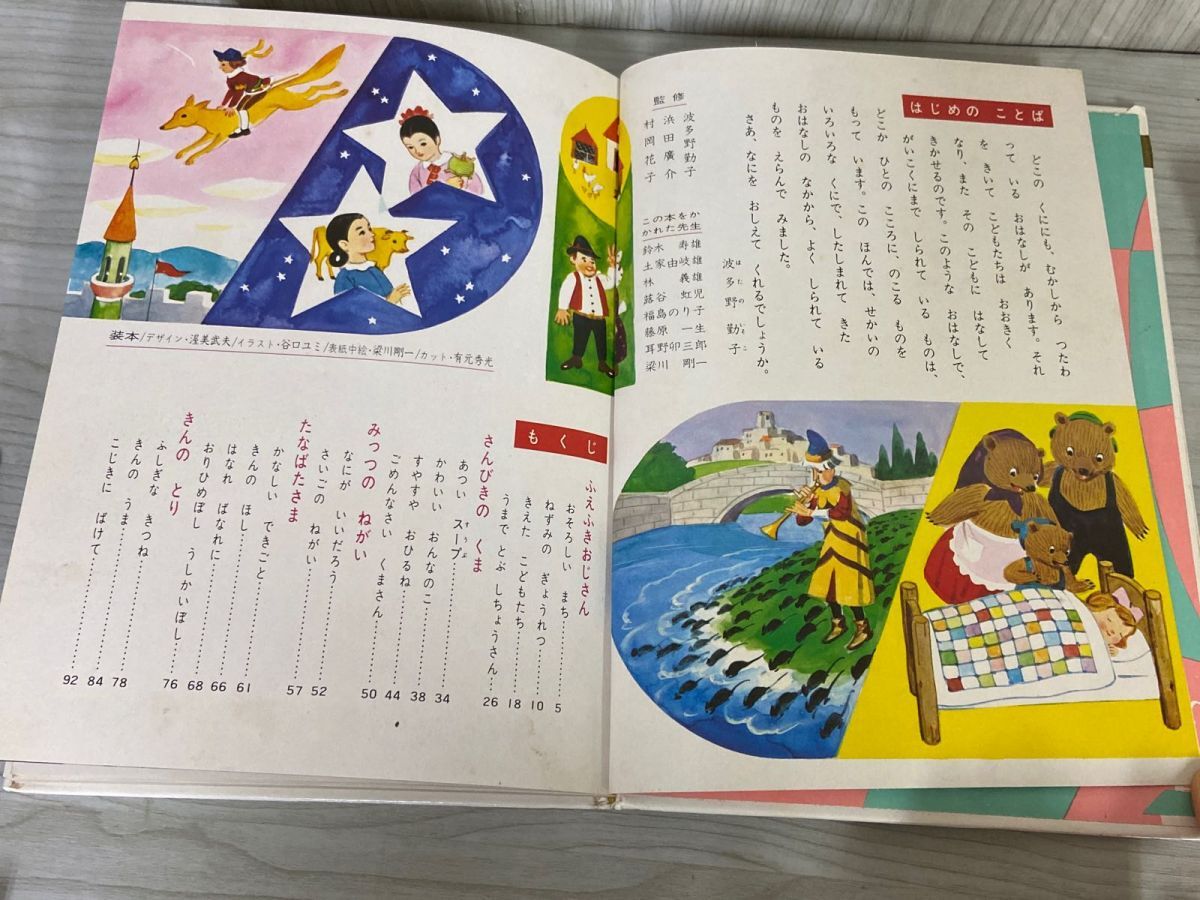 はじめの ことば
どこの くににも、むかしから つたわ
って いる おはなしが あります。それ
を きいて こどもたちは おおきく
なり、また その こどもに はなして
きかせるのです。このような おはなしで、
がいこくにまで しられて いる ものは、
どこか ひとの こころに、のこる ものを
もって います。この ほんでは、せかいの
いろいろな くにで、したしまれて きた
おはなしの なかから、よく しられて いる
ものを えらんで みました。
さあ、なにを おしえて くれるでしょうか。
波多野勤子
はたのいそこ
監修
波多野勤子
浜田廣介
村岡花子
この本をか
かれた先生
鈴木寿雄
土家由岐雄
林義雄
蕗谷虹児
福島のり子
藤原一生
耳野卯三郎
梁川剛一
装本/デザイン・渥美武夫/イラスト・谷口ユミ/表紙中絵・梁川剛一/カット・有元秀光
もくじ
ふえふきおじさん
おそろしい まち……5
ねずみの ぎょうれつ……10
きえた こどもたち……18
うまで とぶ しちょうさん……26
さんびきの くま
あつい スープ……34
すうぷ
かわいい おんなのこ……38
すやすや おひるね……44
ごめんなさい くまさん……50
みっつの ねがい
なにが いいだろう……52
さいごの ねがい……57
たなばたさま
かなしい できごと……61
きんの ほし……66
はなれ ばなれに……68
おりひめぼし うしかいぼし……76
きんの とり
ふしぎな きつね……78
きんの うま……84
こじきに ばけて……92